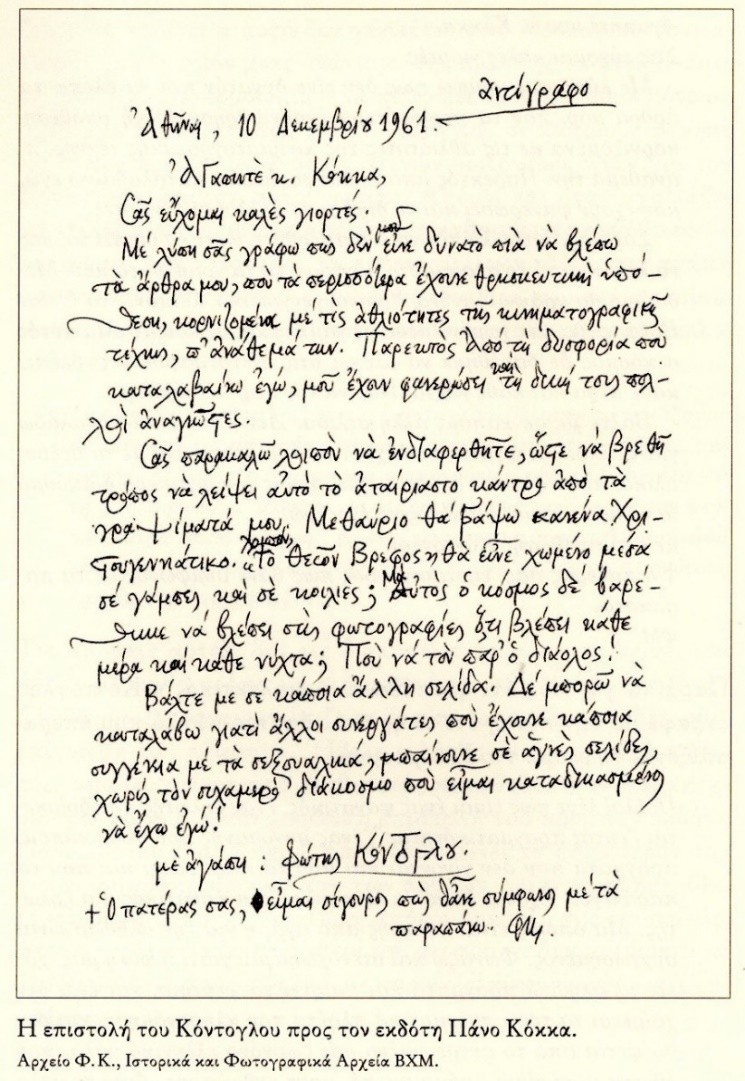 ἀντίγραφο
Ἀθῆναι, 10 Δεκεμβρίου 1961.
Ἀγαπητὲ κ. Κόκκα,
Σᾶς εὔχομαι καλὲς γιορτές.
Μὲ λύπη σᾶς γράφω πὼς δὲν μοῦ εἶνε δυνατὸ πιὰ νὰ βλέπω
τὰ ἄρθρα μου, ποὺ τὰ περισσότερα ἔχουνε θρησκευτικὴ ὑπό-
θεση, κορνιζομένα μὲ τὶς ἀθλιότητες τῆς κινηματογραφικῆς
τέχνης, π' ἀνάθεμά την. Παρεκτὸς ἀπὸ τὴ δυσφορία ποὺ
καταλαβαίνω ἐγώ, μοῦ ἔχουν φανερώσει καὶ τὴ δική τους πολ-
λοὶ ἀναγνῶστες.
Σᾶς παρακαλῶ λοιπὸν νὰ ἐνδιαφερθῆτε, ὥστε νὰ βρεθῆ
τρόπος νὰ λείψει αὐτὸ τὸ ἀταίριαστο κάντρο ἀπὸ τὰ
γραψίματά μου. Μεθαύριο θὰ βάψω κανένα Χρι-
στουγεννιάτικο. λοιπὸν, «Τὸ Θεῖον Βρέφος» θὰ εἶνε χωμένο μέσα
σὲ γάμπες καὶ σὲ κοιλιές; Μὰ αὐτὸς ὁ κόσμος δὲ βαρέ-
θηκε νὰ βλέπει στὶς φωτογραφίες ὅτι βλέπει κάθε
μέρα καὶ κάθε νύχτα; Ποὺ νὰ τὸν πάρ' ὁ διάολος!
Βάλτε με σὲ κάποια ἄλλη σελίδα. Δὲ μπορῶ νὰ
καταλάβω γιατὶ ἄλλοι συνεργάτες ποὺ ἔχουνε κάποια
συγγένεια μὲ τὰ σεξουαλικά, μπαίνουνε σὲ ἁγνὲς σελίδες,
χωρὶς τὸν σιχαμερὸ διάκοσμο ποὺ εἶμαι καταδικασμένος
νὰ ἔχω ἐγώ!
μὲ ἀγάπη: Φώτης Κόντογλου.
+ Ὁ πατέρας σας, εἶμαι σίγουρος πὼς θἆνε σύμφωνος μὲ τὰ
παραπάνω.
Η επιστολή του Κόντογλου προς τον εκδότη Πάνο Κόκκα.
Αρχείο Φ. Κ., Ιστορικά και Φωτογραφικά Αρχεία ΒΧΜ.